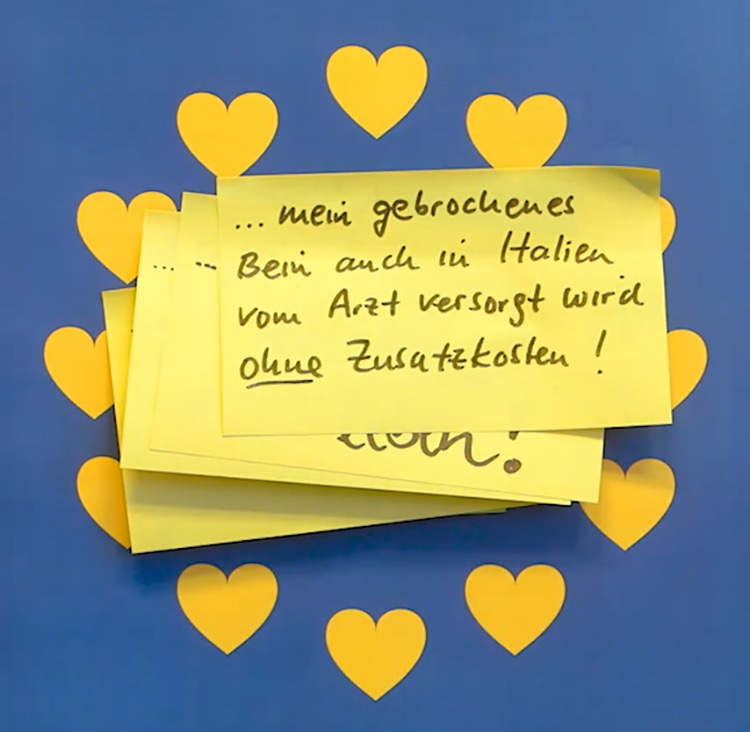 ... mein gebrochenes
Bein auch in Italien
vom Arzt versorgt wird
ohne Zusatzkosten !
... ...